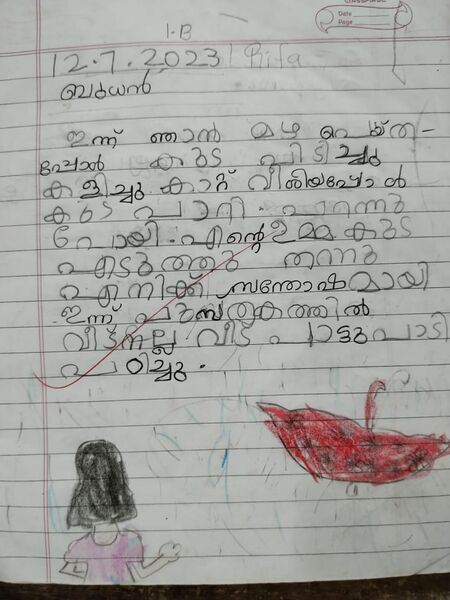 CLASSMATE
Date
Page
1-B
12.7.2023 Rifa
ബുധൻ
ഇന്ന് ഞാൻ മഴ പെയ്ത-
പ്പോൾ കുട പിടിച്ചു
കളിച്ചു കാറ്റ് വീശിയപ്പോൾ
കുട പാറി. പറന്നു
പോയി. എന്റെ ഉമ്മ കുട
എടുത്തു തന്നു
എനിക്ക് സന്തോഷമായി
ഇന്ന് പുസ്തകത്തിൽ
വീട് നല്ല വീട് പാട്ടു പാടി
പഠിച്ചു.